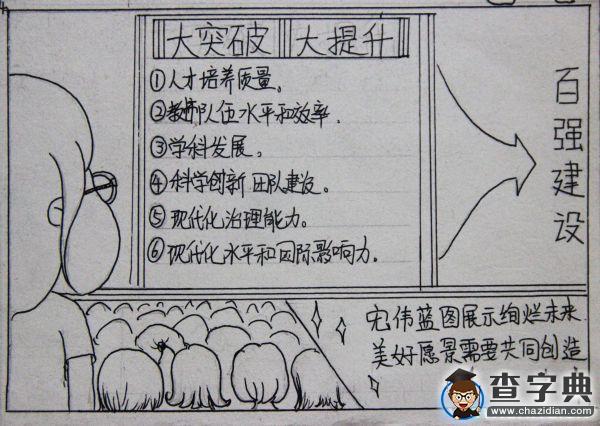 大突破 大提升
①人才培养质量。
②教师队伍水平和效率.
③学科发展。
④科学创新团队建设。
⑤现代化治理能力。
⑥现代化水平和国际影响力。
百强建设
宏伟蓝图展示绚烂未来
美好愿景需要共同创造
查字典
www.chazidian.com